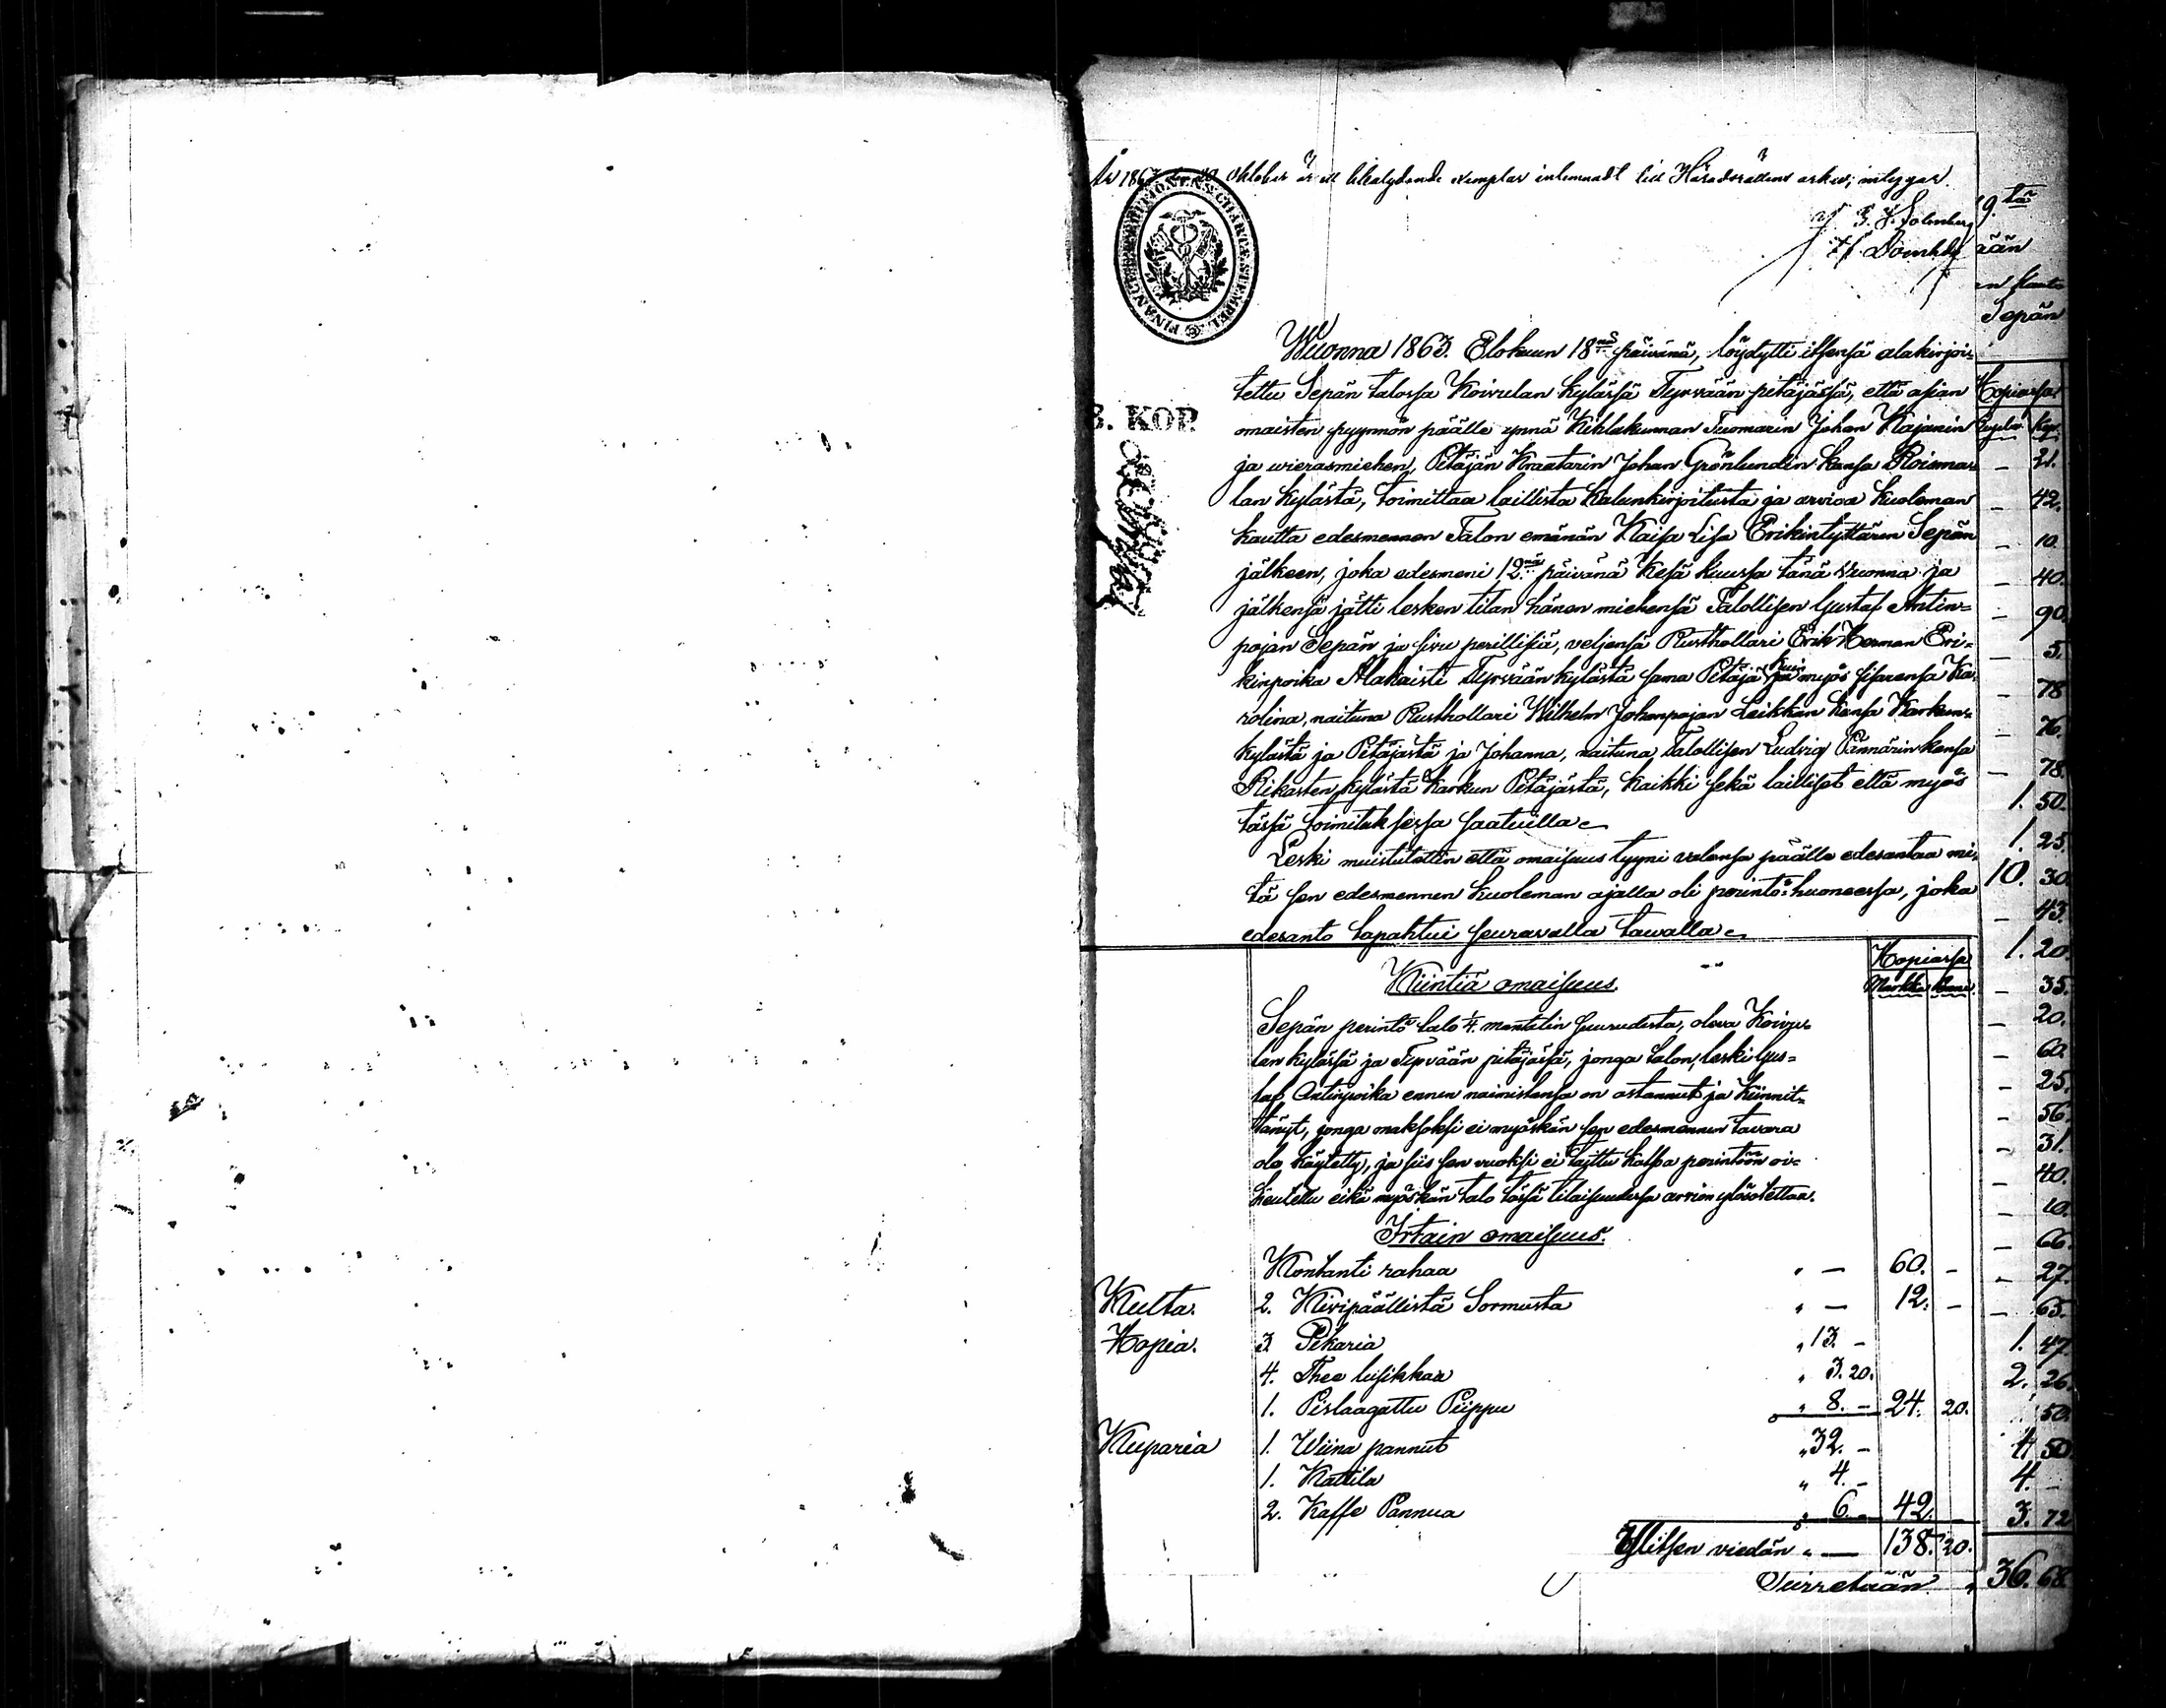 År 1863 den 20 Oktober är ett likalydande exemplar inlemnadt till Häradsrättens arkiv; intygar.
FINANCE EXPEDITIONENS CHARTÆ STEMPEL
3. KOP.
Wuonna 1863. Elokuun 18na päivänä, löydytti itsensä alakirjoi-
tettu Sepän talossa Koivulan kylässä Tyrvään pitäjässä, että asian
omaisten pyynnön päälle ynnä Kihlakunnan Tuomarin Johan Kajanin
ja wierasmiehen, Pitäjän Kraatarin Johan Grönlundin kansa Roismas
lan kylästä, toimittaa laillista kalunkirjoitusta ja arvioa kuoleman
kautta edesmennen Talon emänän Kaisa Lisa Erikintyttären Sepän
jälkeen, joka edesmeni 12na päivänä Kesä kuussa tänä vuonna ja
jälkensä jätti lesken tilan hänen miehensä Talollisen Gustaf Antin=
pojan Sepän ja sivu perillisiä, veljensä Rusthollari Erik Herman Eri=
kinpoika Alakaisti Tyrvään kylästä sama Pitäjä kuin myös sisarensa Ka-
rolina, naituna Rusthollari Wilhelm Johanpojan Leikkan kansa Karkun=
kylästä ja Pitäjästä ja Johanna, naituna Talollisen Ludvig Pännärin kansa
Rikasten kylästä Karkun Pitäjästä, kaikki sekä lailliset että myös
tässä toimituksessa saatuilla
Leski muistutettin että omaisuus tyyni valansa päälle edesantaa mi-
tä sen edesmennen kuoleman ajalla oli perintö=huoneessa, joka
edesanto tapahtui seuravalla tawalla
Hopiassa
Markka
Kiintiä omaisuus.
Sepän perintö talo 1/4 mantalin suurudesta, oleva Koivu-
lan kylässä ja Tyrvään pitäjässä, jonga talon, leski Gus=
taf Antinpoika ennen naimistansa on ostannut ja kiinnit=
tänyt, jonga maksoksi ei myöskän sen edesmennen tavara
ole käytetty, ja siis sen vuoksi ei taittu katsoa perintöön oi-
keutettu eikä myöskän talo tässä tilaisuudessa arvion ylösotettaa.
Irtain omaisuus.
Kontanti rahaa " — 60. -
Kulta. 2. Kivipäällistä Sormusta " — 12. -
Hopia. 3. Pikaria " 13. -
4. Thee lusikkaa " 3. 20.
1. Pislaagattu Piippu " 8. - 24. 20.
Kuparia 1. Wiina pannut " 32. -
1. Kattila " 4. -
2. Kaffe Pannua " 6. - 42. -
Ylitsen viedän " — 138. 20.
19. tä
ään
Sepän
Hopiassa
- 21.
- 42.
- 10.
- 40.
- 90.
- 5.
- 78
- 76.
- 78.
1. 50.
1. 25.
10. 30
- 43.
1. 20.
- 35.
- 20.
- 60.
- 25.
- 56.
- 31.
- 40.
- 10.
- 66.
- 27.
- 63.
1. 47.
2. 26.
50.
4. 50
4. -
3. 72
Siirretään " 36. 68